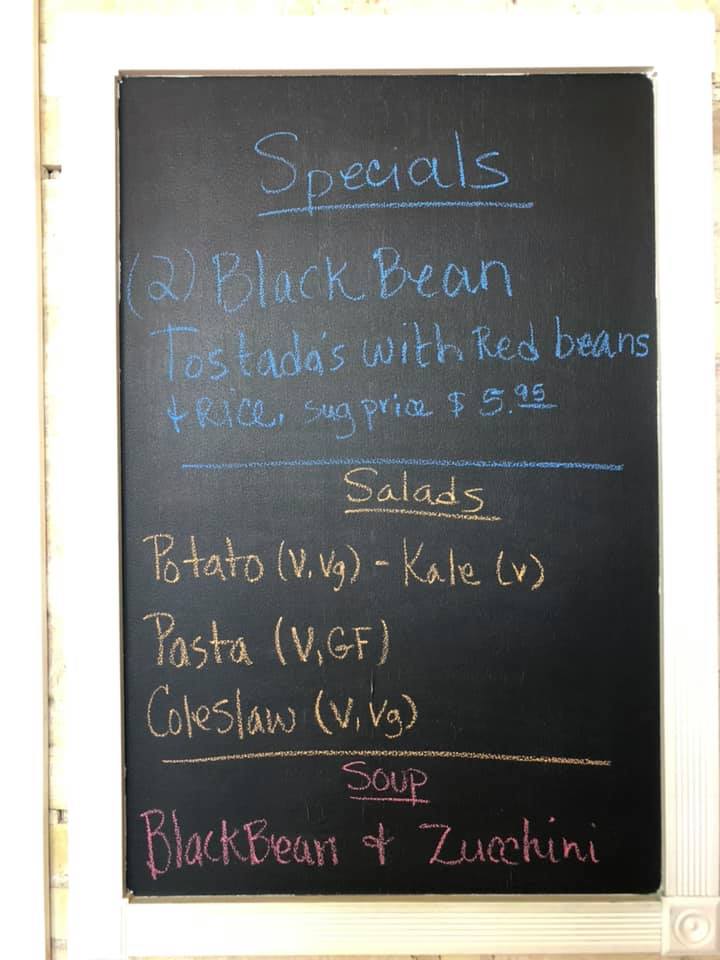 Specials
(2) Black Bean
Tostada's with Red beans
+ Rice, sug price $ 5.95
Salads
Potato (V,Vg) - Kale (v)
Pasta (V,GF)
Coleslaw (V,Vg)
Soup
BlackBean + Zucchini